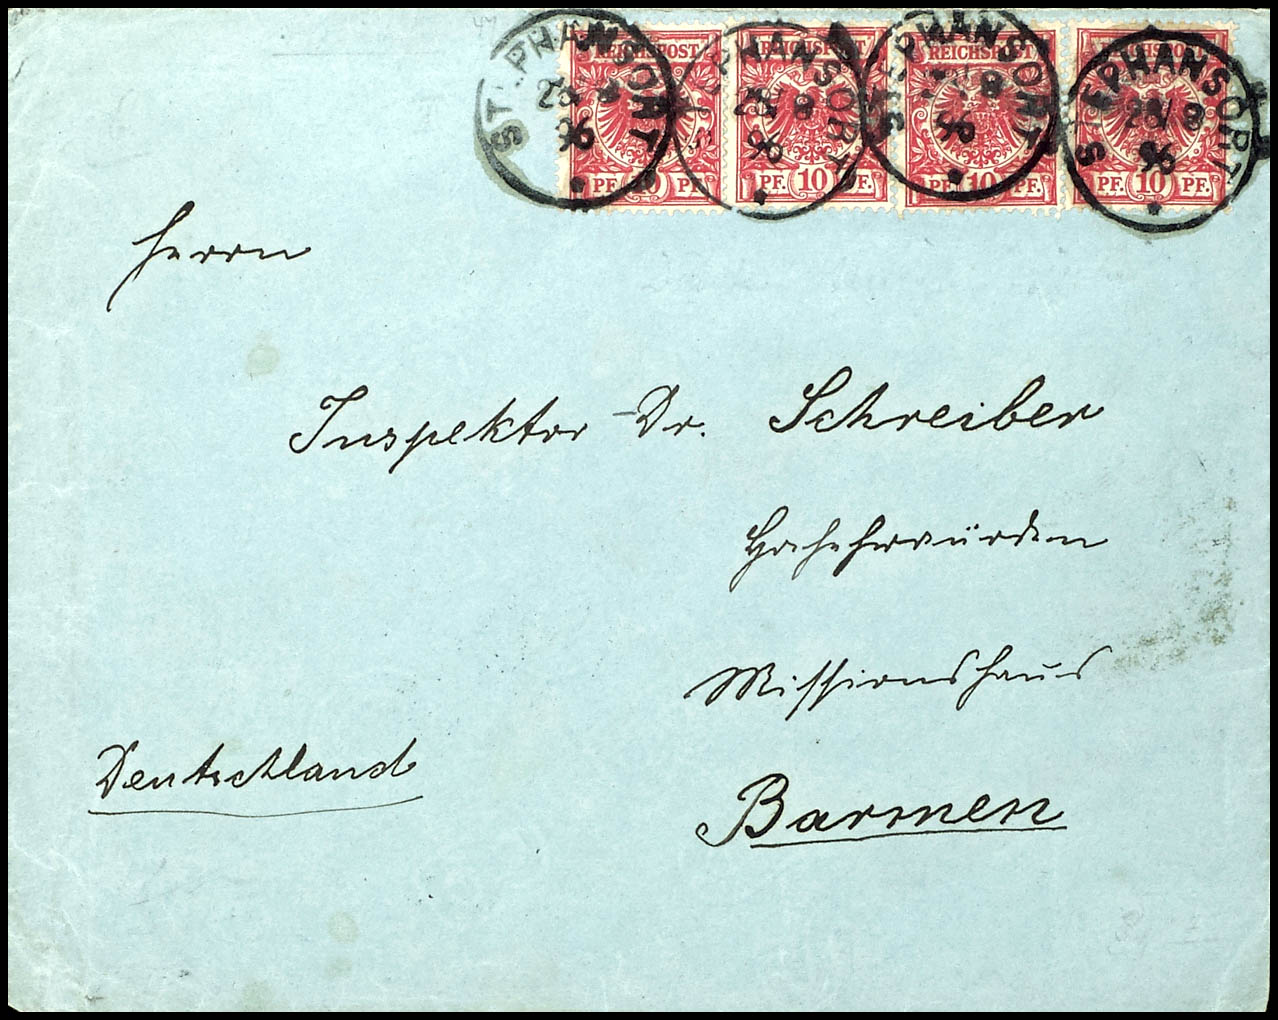 STEPHANSORT STEPHANSORT STEPHANSORT STEPHANSORT
REICHSPOST REICHSPOST REICHSPOST REICHSPOST
23/8 23/8
96 96 96 96
PF. 10 PF. PF. 10 PF. PF. 10 PF. PF. 10 PF.
Herrn
Inspektor Dr. Schreiber
Hochehrwürden
Missionshaus
Deutschland
Barmen